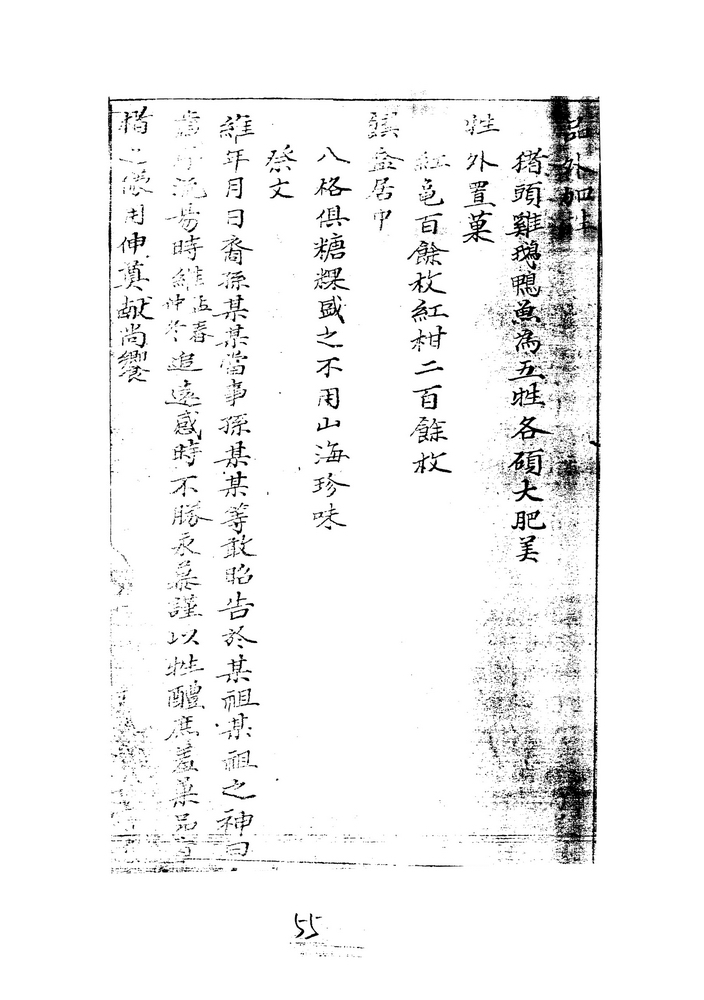 品外加牲
猪頭雞鵝鴨魚為五牲各碩大肥美
牲外置菓
紅龟百餘枚紅柑二百餘枚
饌盒居中
八格俱糖粿盛之不用山海珍味
祭文
維年月日裔孫某某當事孫某某等敢昭告於某祖某祖之神曰
歲序流易時維孟春仲冬追遠感時不勝永慕謹以牲醴庶羞菓品
楮之儀用伸奠献尚饗
55